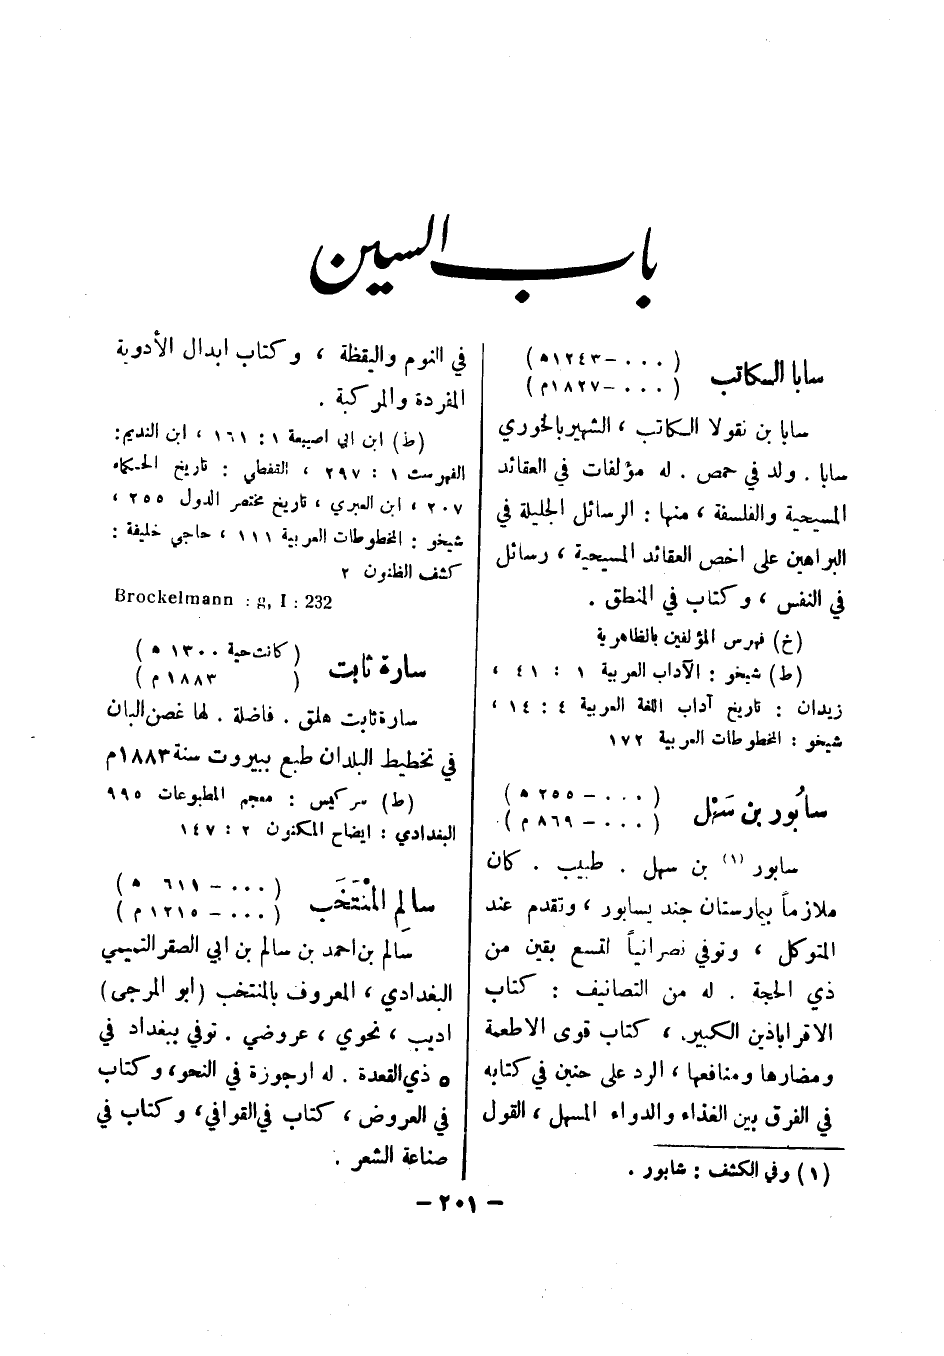 باب السين
سابا الكاتب ( ٠٠٠ – ١٢٤٣ه )
( ٠٠٠ – ١٨٢٧م )
سابا بن نقولا الكاتب ، الشهير بالخوري
سابا . ولد في حمص . له مؤلفات في العقائد
المسيحية والفلسفة ، منها : الرسائل الجليلة في
البراهين على اخص العقائد المسيحية ، رسائل
في النفس ، وكتاب في المنطق .
(خ) فهرس المؤلفين بالظاهرية
(ط) شيخو : الآداب العربية ١ : ٤١ ،
زيدان : تاريخ آداب اللغة العربية ٤ : ١٤ ،
شيخو : المخطوطات العربية ١٧٢
سابُور بن سَهْل ( ٠٠٠ – ٢٥٥ ه )
( ٠٠٠ – ٨٦٩ م )
سابور (١) بن سهل . طبيب . كان
ملازماً بيمارستان جند يسابور ، وتقدم عند
المتوكل ، وتوفي نصرانياً لتسع بقين من
ذي الحجة . له من التصانيف : كتاب
الاقراباذين الكبير ، كتاب قوى الاطعمة
ومضارها ومنافعها ، الرد على حنين في كتابه
في الفرق بين الغذاء والدواء المسهل ، القول
(١) وفي الكشف : شابور .
في النوم واليقظة ، وكتاب ابدال الأدوية
المفردة والمركبة .
(ط) ابن ابي اصيبعة ١ : ١٦١ ، ابن النديم :
الفهرست ١ : ٢٩٧ ، القفطي : تاريخ الحكماء
٢٠٧ ، ابن العبري ، تاريخ مختصر الدول ٢٥٥ ،
شيخو : المخطوطات العربية ١١١ ، حاجي خليفة :
كشف الظنون ٢
Brockelmann : g, I : 232
سارة ثابت ( كانت حية ١٣٠٠ ه )
( ١٨٨٣ م )
سارة ثابت هلمق . فاضلة . لها غصن البان
في تخطيط البلدان طبع ببيروت سنة ١٨٨٣م
(ط) سركيس : معجم المطبوعات ٩٩٥
البغدادي : ايضاح المكنون ٢ : ١٤٧
سالِم المْنتَخَب ( ٠٠٠ – ٦١١ ه )
( ٠٠٠ – ١٢١٥ م )
سالم بن احمد بن سالم بن ابي الصقر التميمي
البغدادي ، المعروف بالمنتخب (ابو المرجى)
اديب ، نحوي ، عروضي . توفي ببغداد في
٥ ذي القعدة . له ارجوزة في النحو ، وكتاب
في العروض ، كتاب في القوافي ، وكتاب في
صناعة الشعر .
– ٢٠١ –